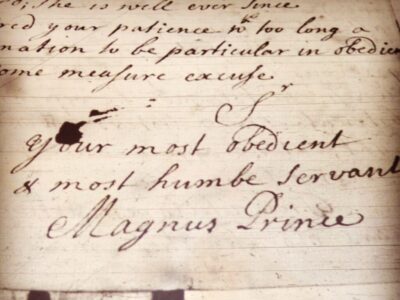 she is well ever since
red your patience wth too long a
nation to be particular in obedien
ome measure excuse
Sr
Your most obedient
& most humbe Servant
Magnus Prince